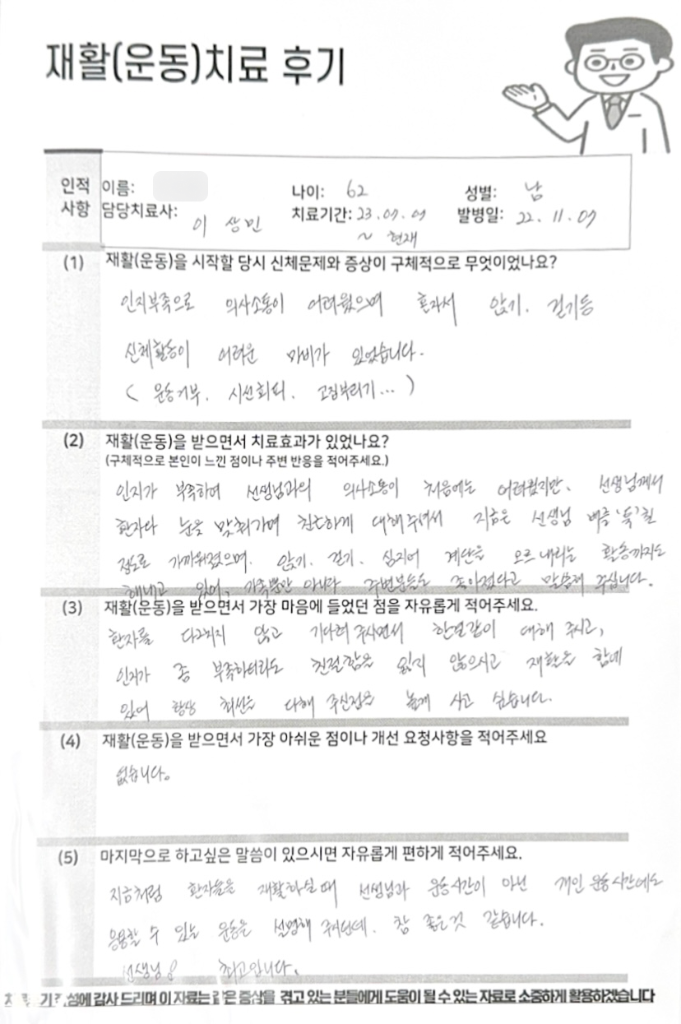 재활(운동)치료 후기
인적
사항
이름:
나이: 62
성별: 남
담당치료사: 이상민
치료기간: 23.09.09
~ 현재
발병일: 22.11.09
(1) 재활(운동)을 시작할 당시 신체문제와 증상이 구체적으로 무엇이었나요?
인지부족으로 의사소통이 어려웠으며 혼자서 앉기. 걷기등
신체활동이 어려운 마비가 있었습니다.
( 운동거부. 시선회피. 고집부리기... )
(2) 재활(운동)을 받으면서 치료효과가 있었나요?
(구체적으로 본인이 느낀 점이나 주변 반응을 적어주세요.)
인지가 부족하여 선생님과의 의사소통이 처음에는 어려웠지만. 선생님께서
환자와 눈을 맞춰가며 친근하게 대해주셔서 지금은 선생님
정도로 가까워졌으며. 앉기. 걷기. 심지어 계단을 오르내리는 활동까지도
해내고 있어, 가족뿐만 아니라 주변분들도 좋아졌다고 말씀해 주십니다.
(3) 재활(운동)을 받으면서 가장 마음에 들었던 점을 자유롭게 적어주세요.
환자를 다그치지 않고 기다려 주시면서 한결같이 대해 주시고,
인지가 좀 부족하더라도 친절함을 잃지 않으시고 재활을 함에
있어 항상 최선을 다해 주신점을 높게 사고 싶습니다.
(4) 재활(운동)을 받으면서 가장 아쉬운 점이나 개선 요청사항을 적어주세요
없습니다.
(5) 마지막으로 하고싶은 말씀이 있으시면 자유롭게 편하게 적어주세요.
지금처럼 환자들은 재활하실때 선생님과 운동시간이 아닌 개인 운동시간에도
응용할 수 있는 운동을 설명해 주신다면. 참 좋은것 같습니다.
선생님 최고입니다.
성에 감사 드리며 이 자료는 같은 증상을 겪고 있는 분들에게 도움이 될 수 있는 자료로 소중하게 활용하겠습니다